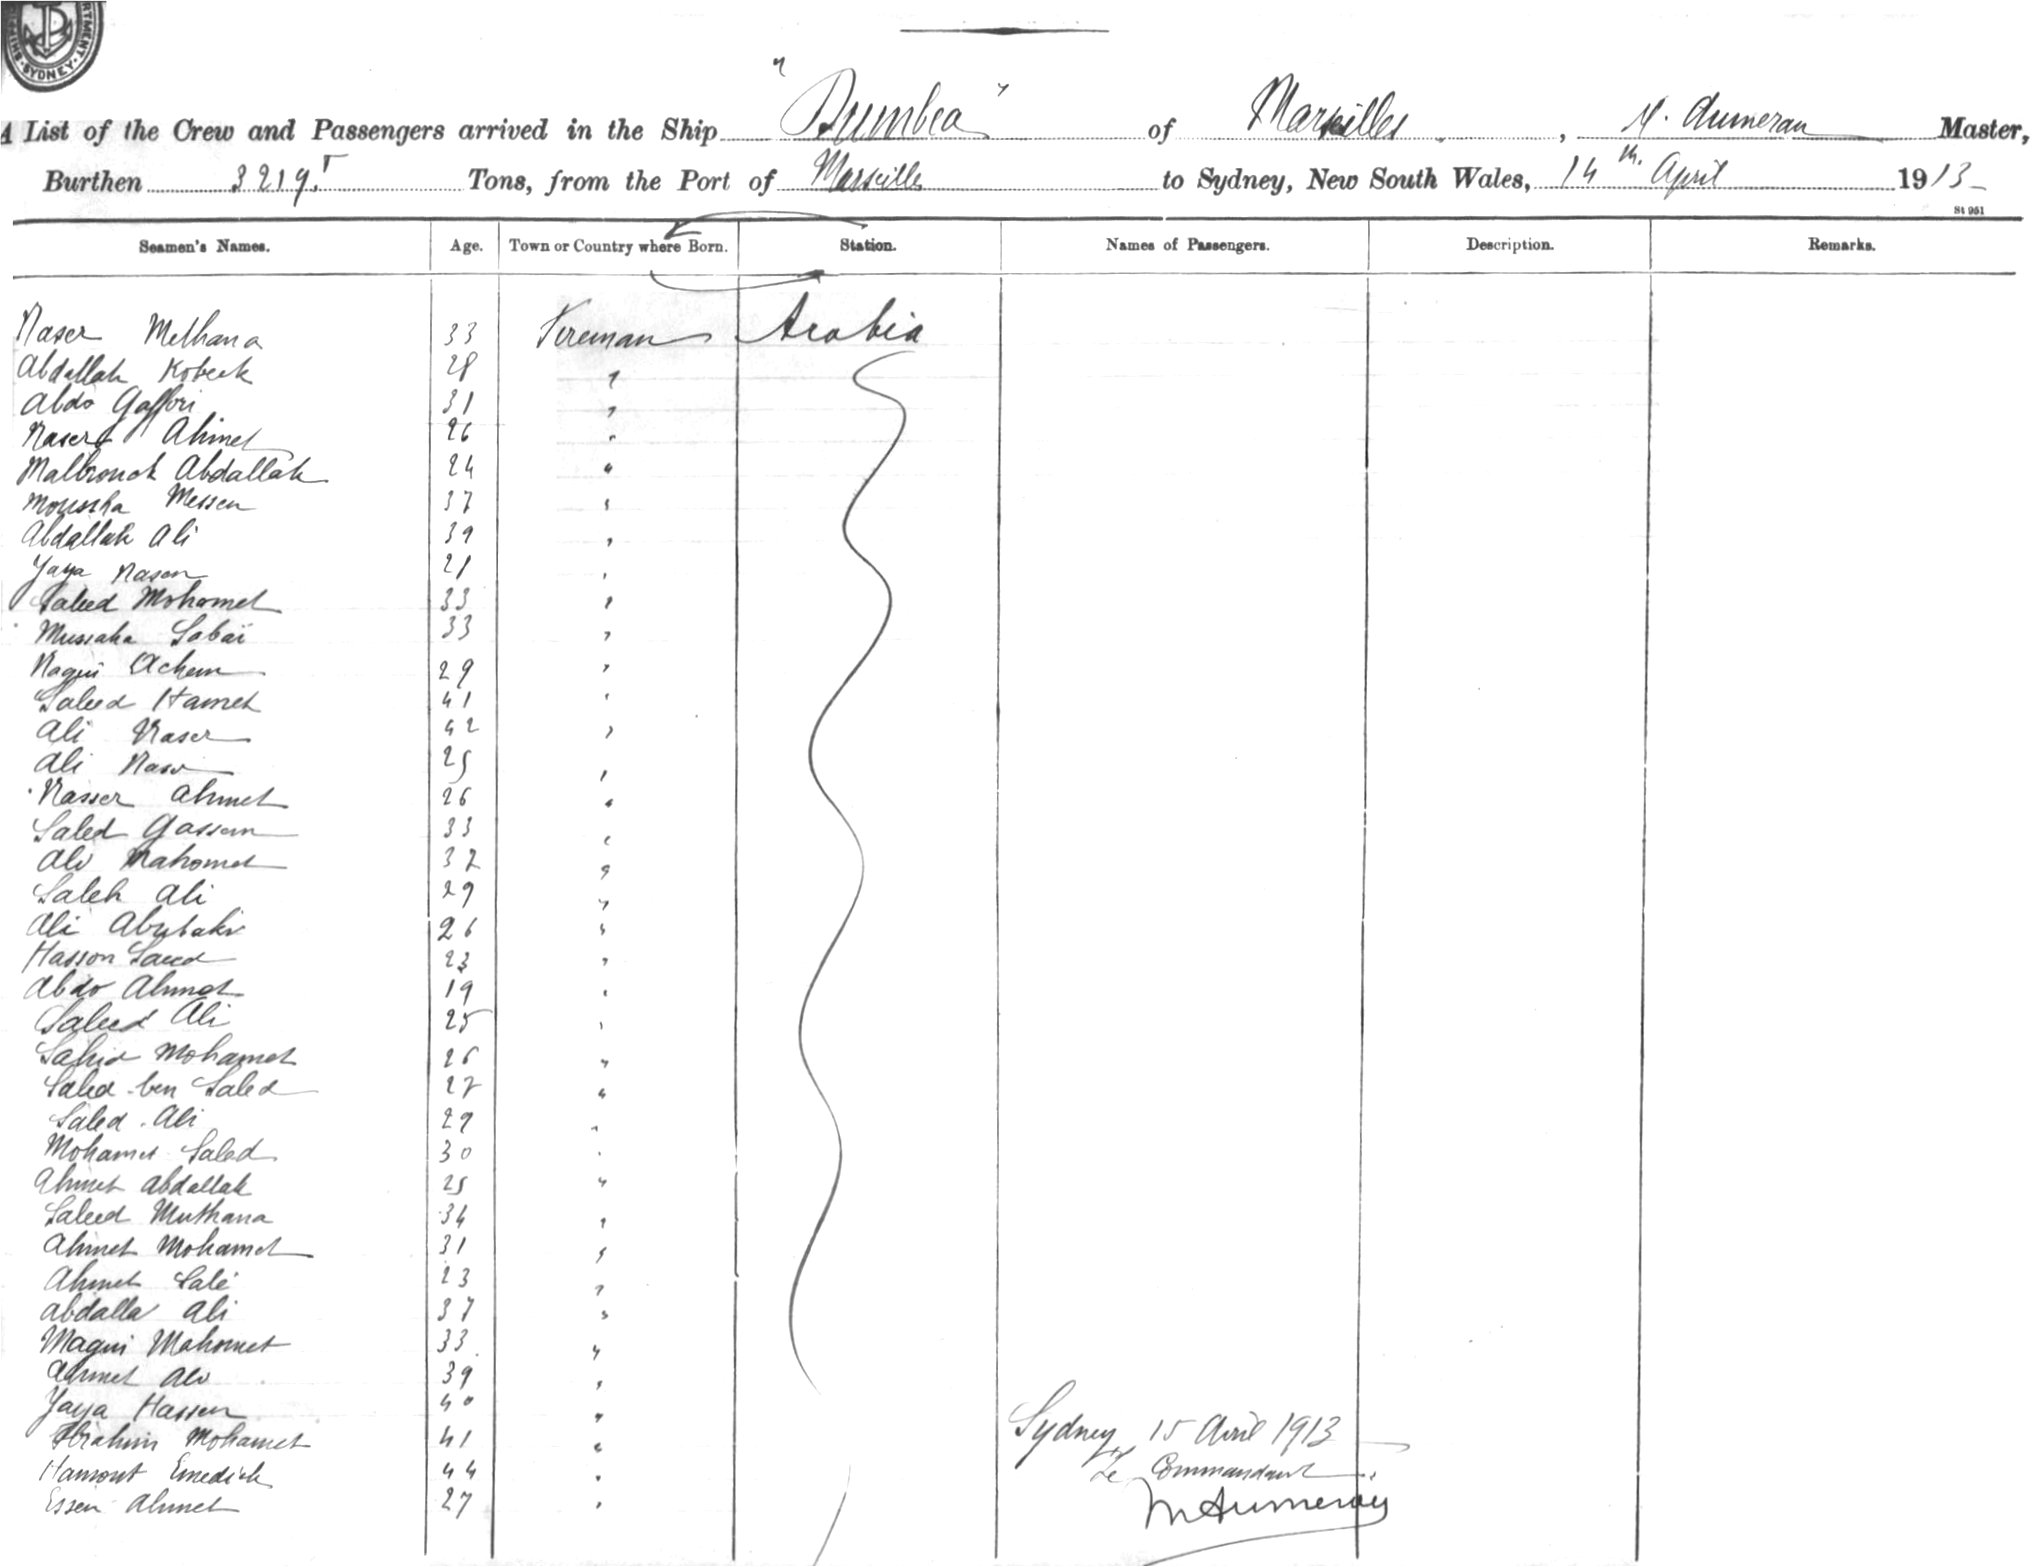 SHIPPING DEPARTMENT. SYDNEY.
A List of the Crew and Passengers arrived in the Ship "Dumbea" of Marseilles, M. Aumeran Master,
Burthen 3219 T Tons, from the Port of Marseilles to Sydney, New South Wales, 14th April 1913
St 951
Seamen's Names. Age. Town or Country where Born. Station. Names of Passengers. Description. Remarks.
Naser Methana 33 Fireman Arabia
Abdallah Kobeek 28 "
Abdo Gaffori 31 "
Naser Ahmet 26 "
Malbrouck Abdallah 24 "
Moussha Messen 37 "
Abdallah Ali 39 "
Yaya Nason 21 "
Saleed Mohamet 33 "
Mussaha Sabaï 33 "
Nagui Achem 29 "
Saleed Hamet 41 "
Ali Naser 42 "
Ali Naser 25 "
Nasser Ahmet 26 "
Saled Gassem 33 "
Ali Mahomet 37 "
Saleh Ali 29 "
Ali Abubakr 26 "
Hasson Saeed 23 "
Abdo Ahmet 19 "
Saleed Ali 25 "
Sahid Mohamet 26 "
Saled ben Saled 27 "
Saled Ali 29 "
Mohamet Saled 30 "
Ahmet Abdallah 25 "
Saleed Muthana 34 "
Ahmet Mohamet 31 "
Ahmet Salé 23 "
Abdalla Ali 37 "
Magui Mahomet 33 "
Ahmet Ali 39 "
Yaya Hassen 40 "
Ibrahim Mohamet 41 "
Hamout Emedick 44 "
Essen Ahmet 27 "
Sydney 15 Avril 1913
Le Commandant
M Aumeran